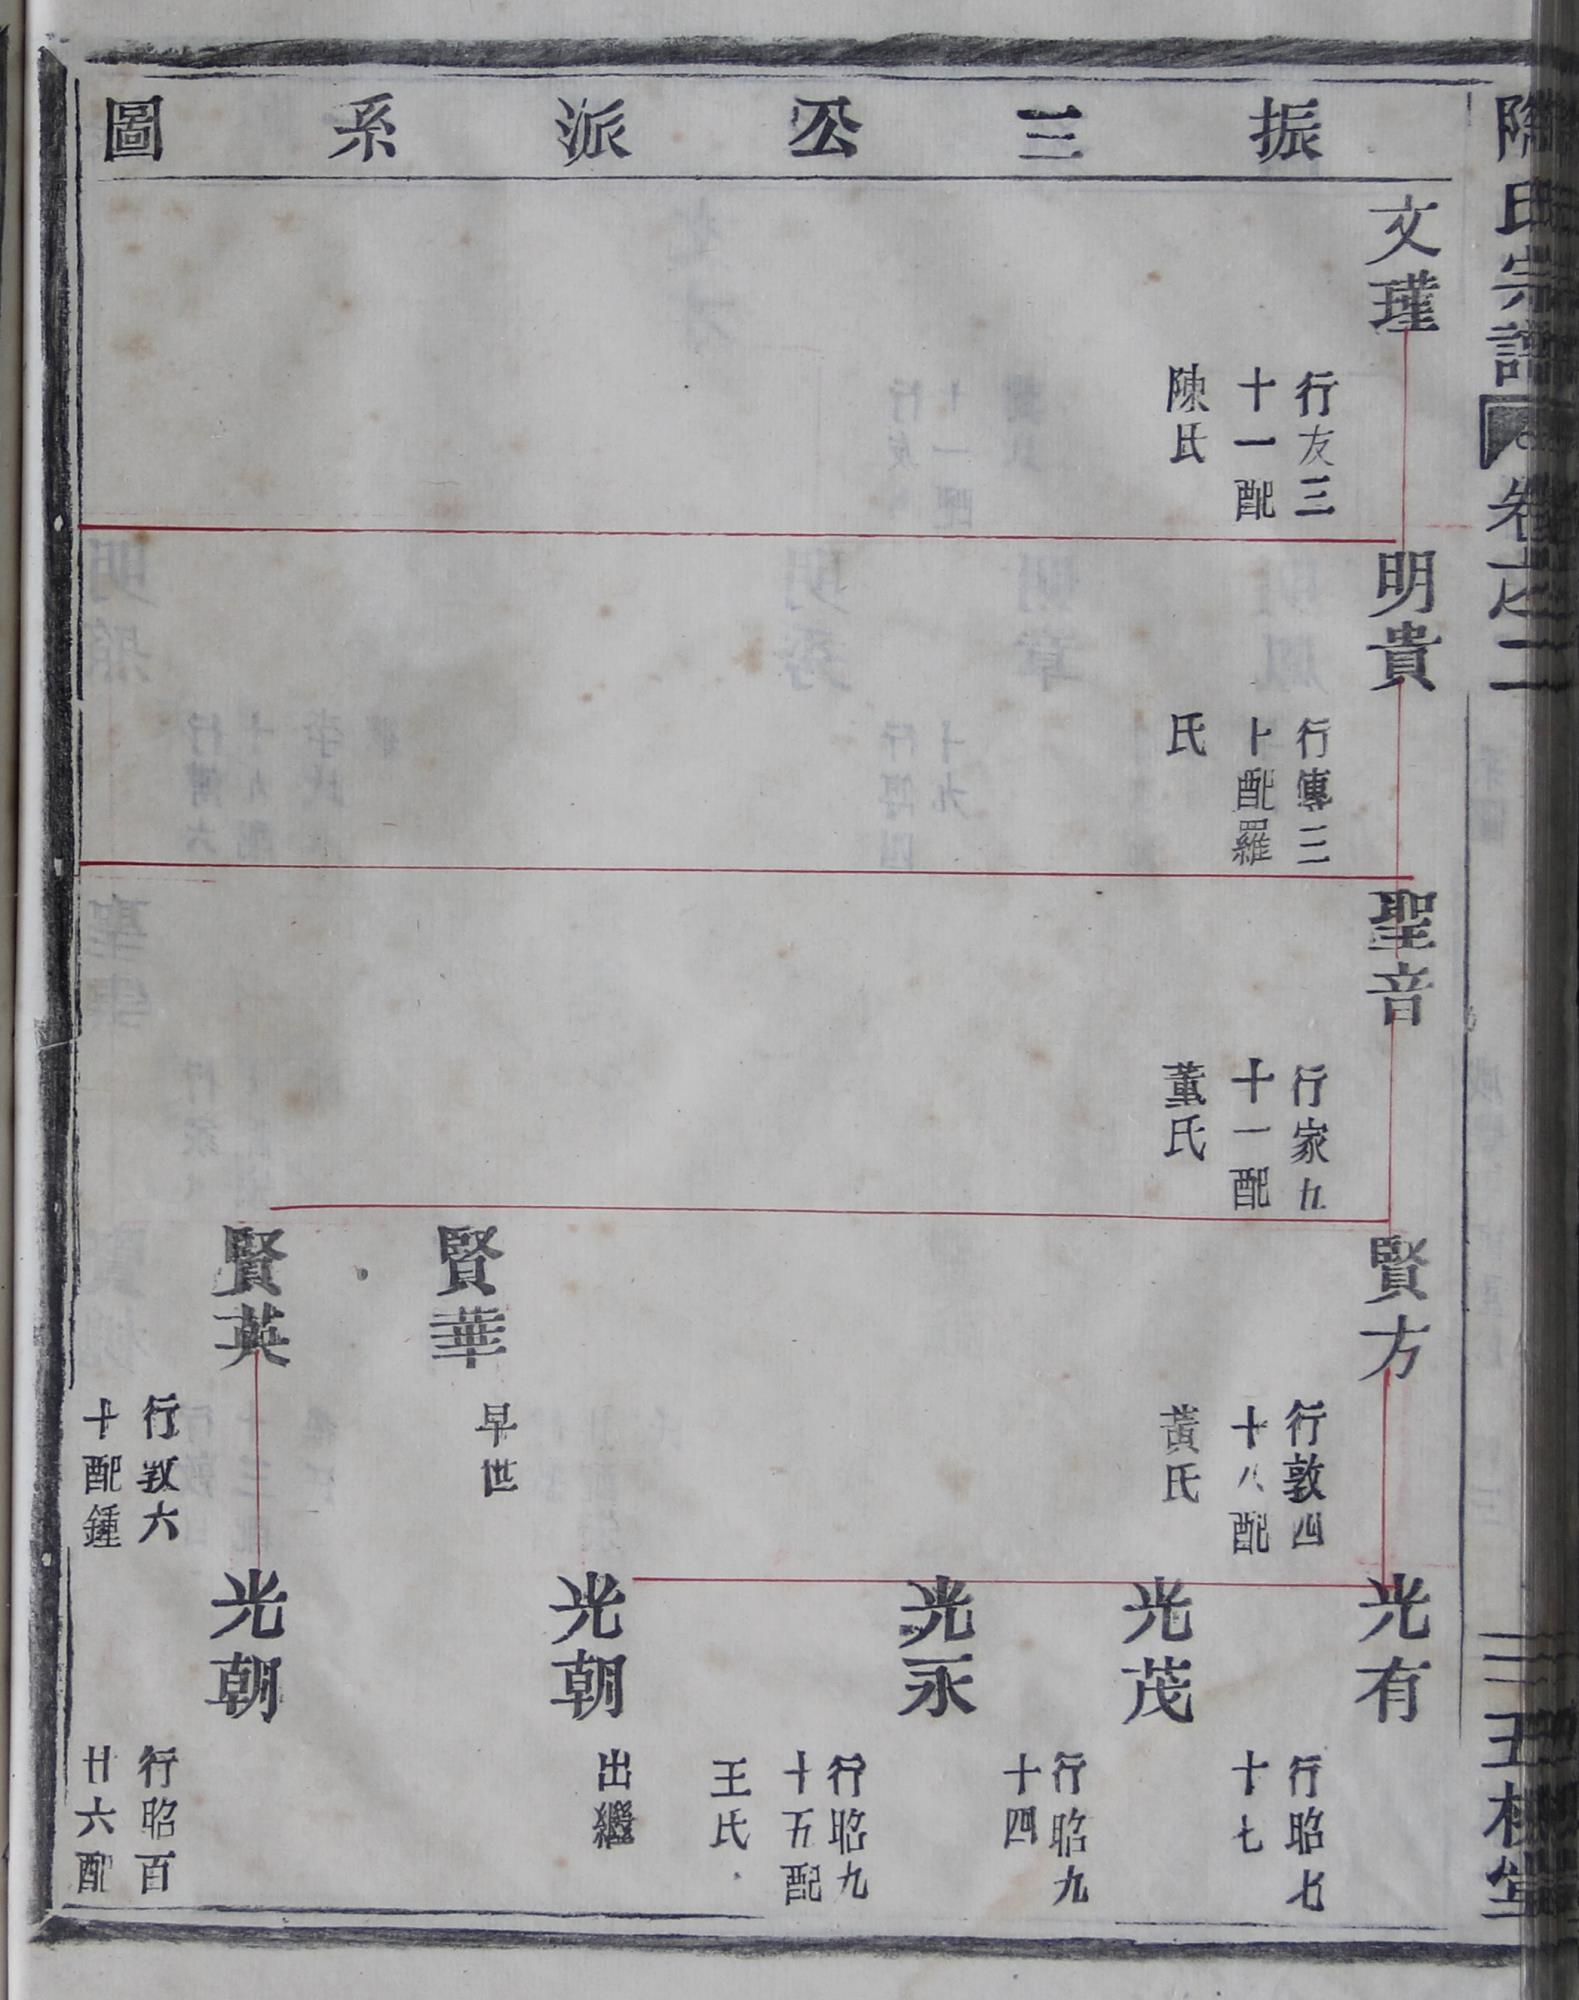 陶氏宗譜
卷之二
三
五柳堂
振三公派系圖
文瑾
行友三
十一配
陳氏
明貴
行傳三
十配羅
氏
聖音
行家九
十一配
董氏
賢方
行敦四
十八配
黃氏
賢華
早世
賢英
行敦六
十配鍾
光有
行昭七
十七
光茂
行昭九
十四
光永
行昭九
十五配
王氏
光朝
出繼
光朝
行昭百
廿六配